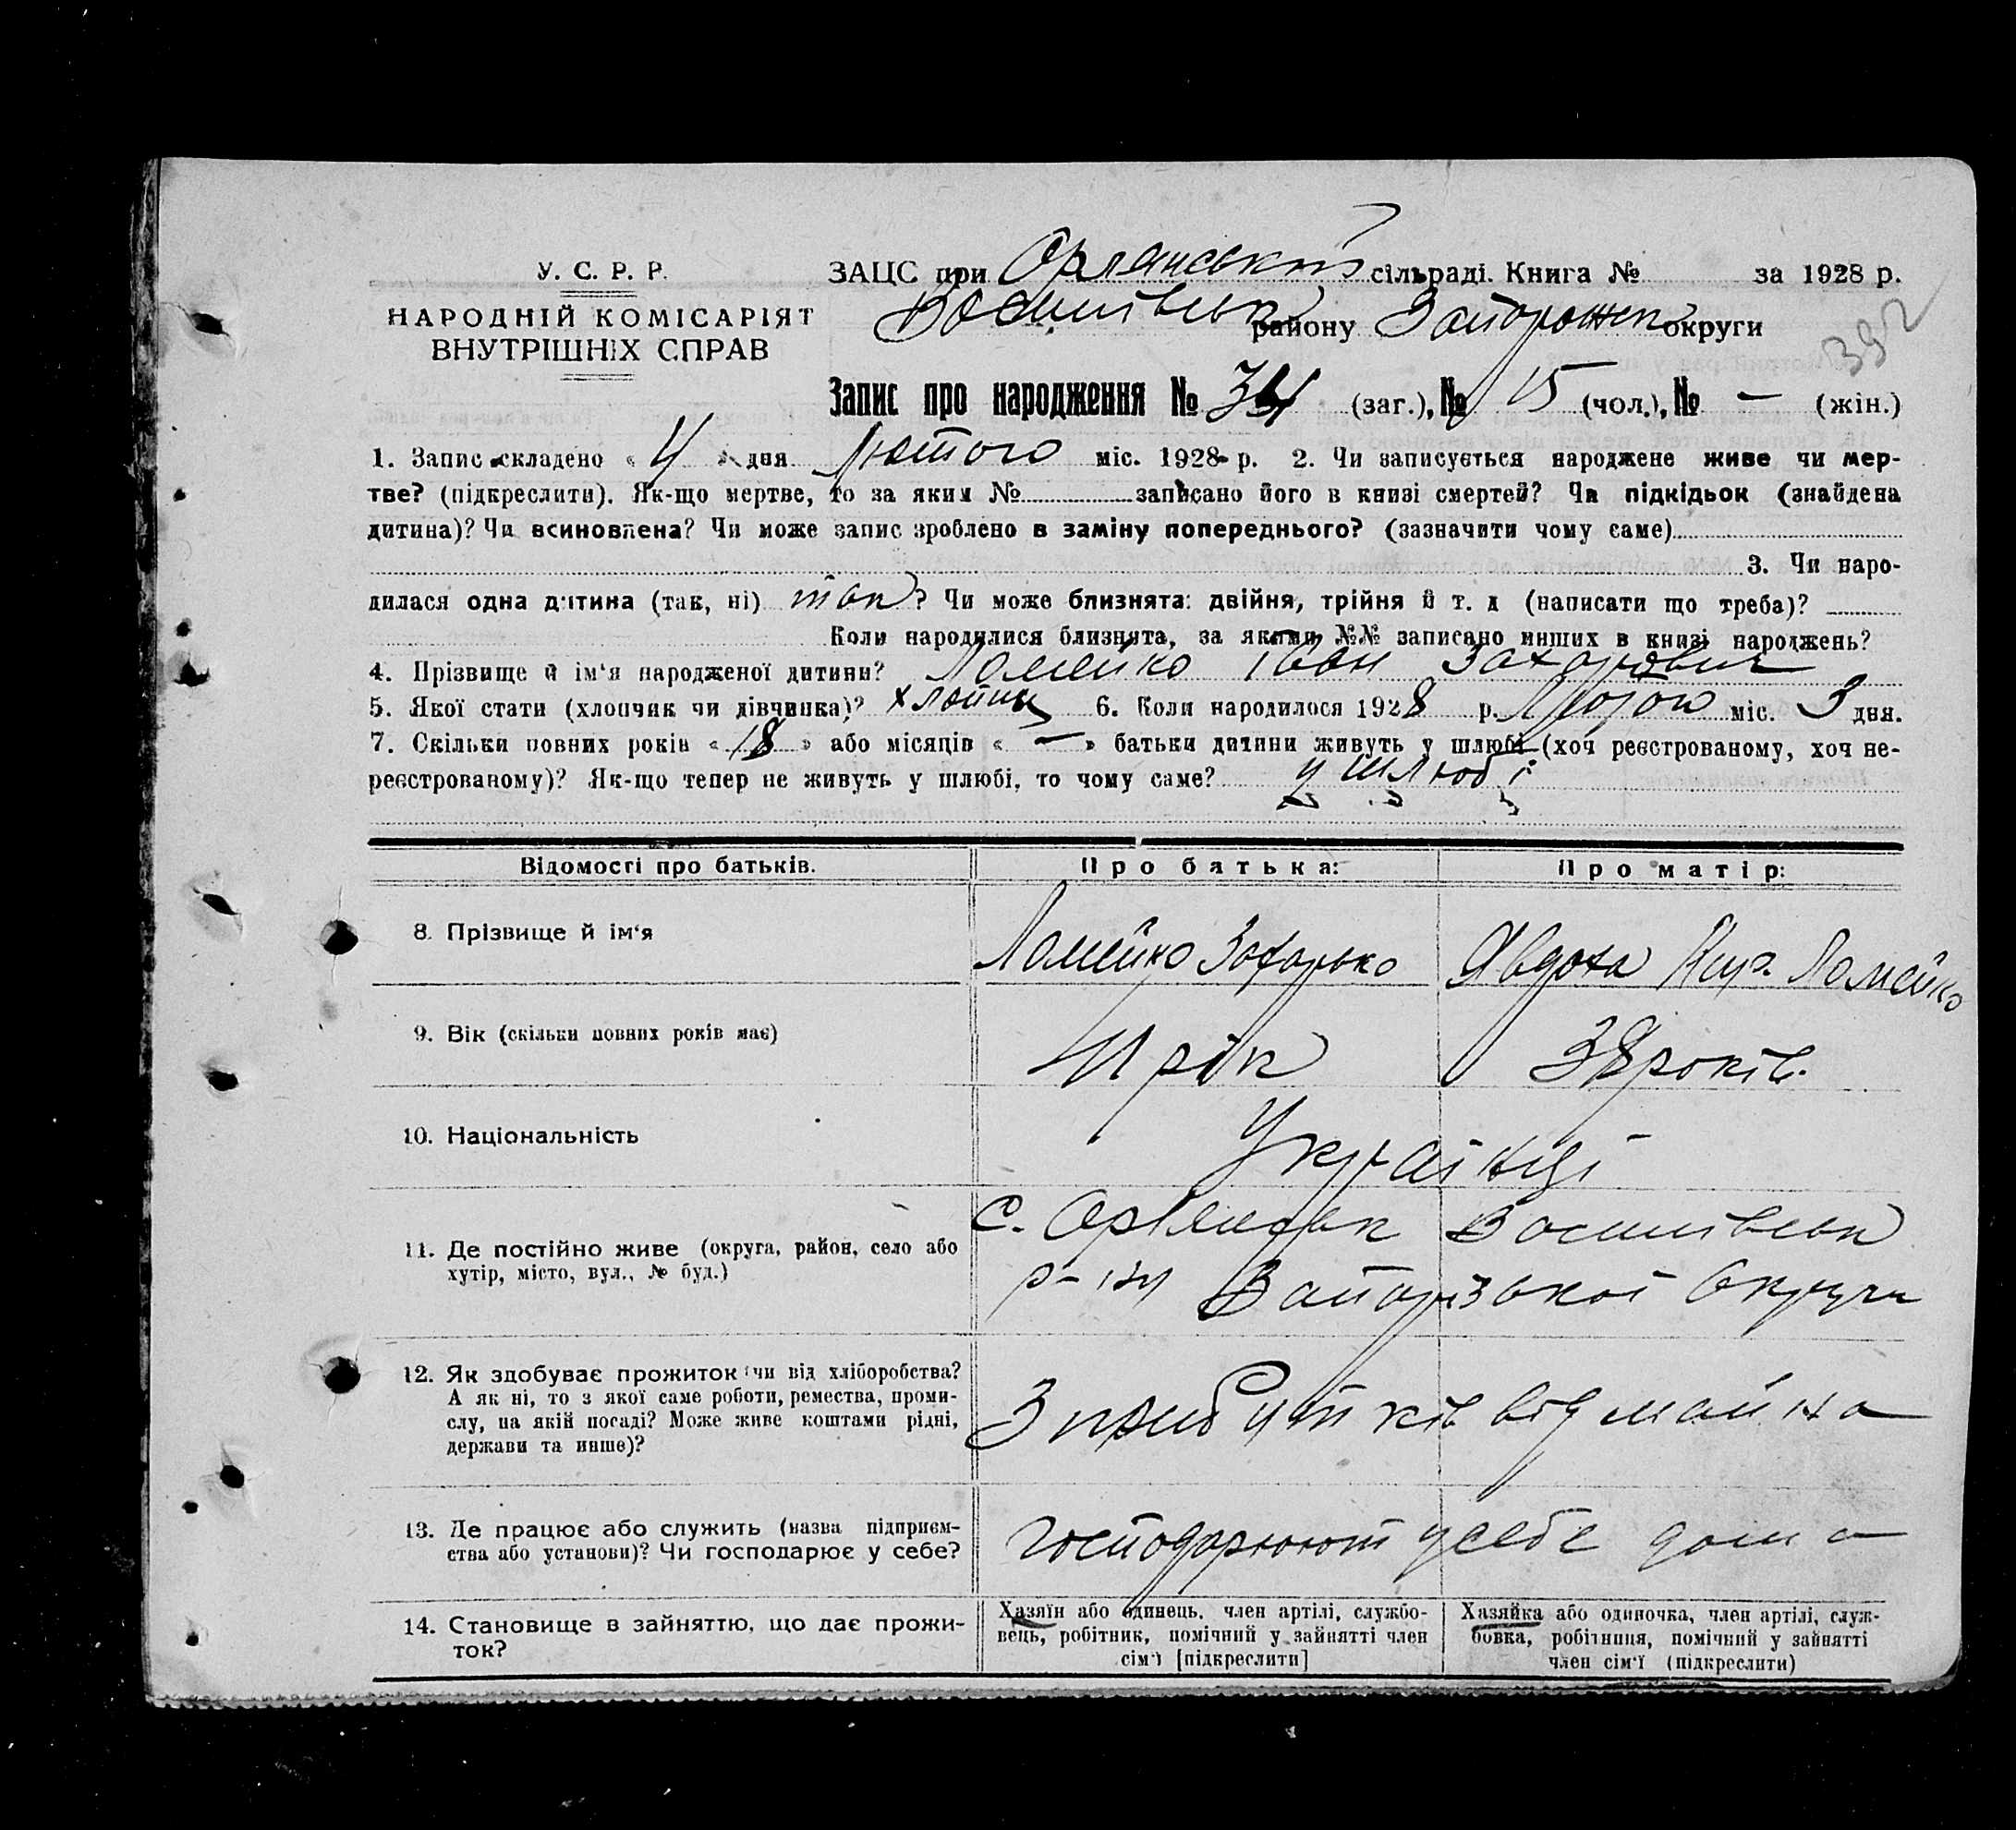 У. С. Р. Р.
НАРОДНІЙ КОМІСАРІЯТ
ВНУТРІШНІХ СПРАВ
ЗАЦС при Орлянській сільраді. Книга № за 1928 р.
Василівськ району Запорожск округи
392
Запис про народження № 34 (заг.), № 15 (чол.), № — (жін.)
1. Запис складено « 4 » дня Лютого міс. 1928 р. 2. Чи записується народжене живе чи мер-
тве? (підкреслити). Як-що мертве, то за яким № записано його в книзі смертей? Чи підкідьок (знайдена
дитина)? Чи всиновлена? Чи може запис зроблено в заміну попереднього? (зазначити чому саме)
3. Чи наро-
дилася одна дитина (так, ні) так? Чи може близнята: двійня, трійня й т. д (написати що треба)?
Коли народилися близнята, за якими №№ записано инших в книзі народжень?
4. Прізвище й ім'я народженої дитини? Ломейко Іван Захарович
5. Якої стати (хлопчик чи дівчинка)? хлопець 6. Коли народилося 1928 р. Лютого міс. 3 дня.
7. Скільки повних років « 18 » або місяців « — » батьки дитини живуть у шлюбі (хоч реєстрованому, хоч не-
реєстрованому)? Як-що тепер не живуть у шлюбі, то чому саме? у шлюбі
Відомості про батьків. Про батька: Про матір:
8. Прізвище й ім'я Ломейко Захарько Явдоха Ломейко
9. Вік (скільки повних років має) 41 рік 38 років.
10. Національність Українці
11. Де постійно живе (округа, район, село або
хутір, місто, вул., № буд.)
с. Орлянськ Василівськ
р-ну Запорізької Округи
12. Як здобуває прожиток чи від хліборобства?
А як ні, то з якої саме роботи, ремества, проми-
слу, на якій посаді? Може живе коштами рідні,
держави та инше)?
З прибутків від майна
13. Де працює або служить (назва підприєм-
ства або установи)? Чи господарює у себе?
господарюють у себе дома
14. Становище в зайняттю, що дає прожи-
ток?
Хазяїн або одинець, член артілі, службо-
вець, робітник, помічний у зайнятті член
сім'ї [підкреслити]
Хазяйка або одиночка, член артілі, служ-
бовка, робітниця, помічний у зайнятті
член сім'ї (підкреслити)